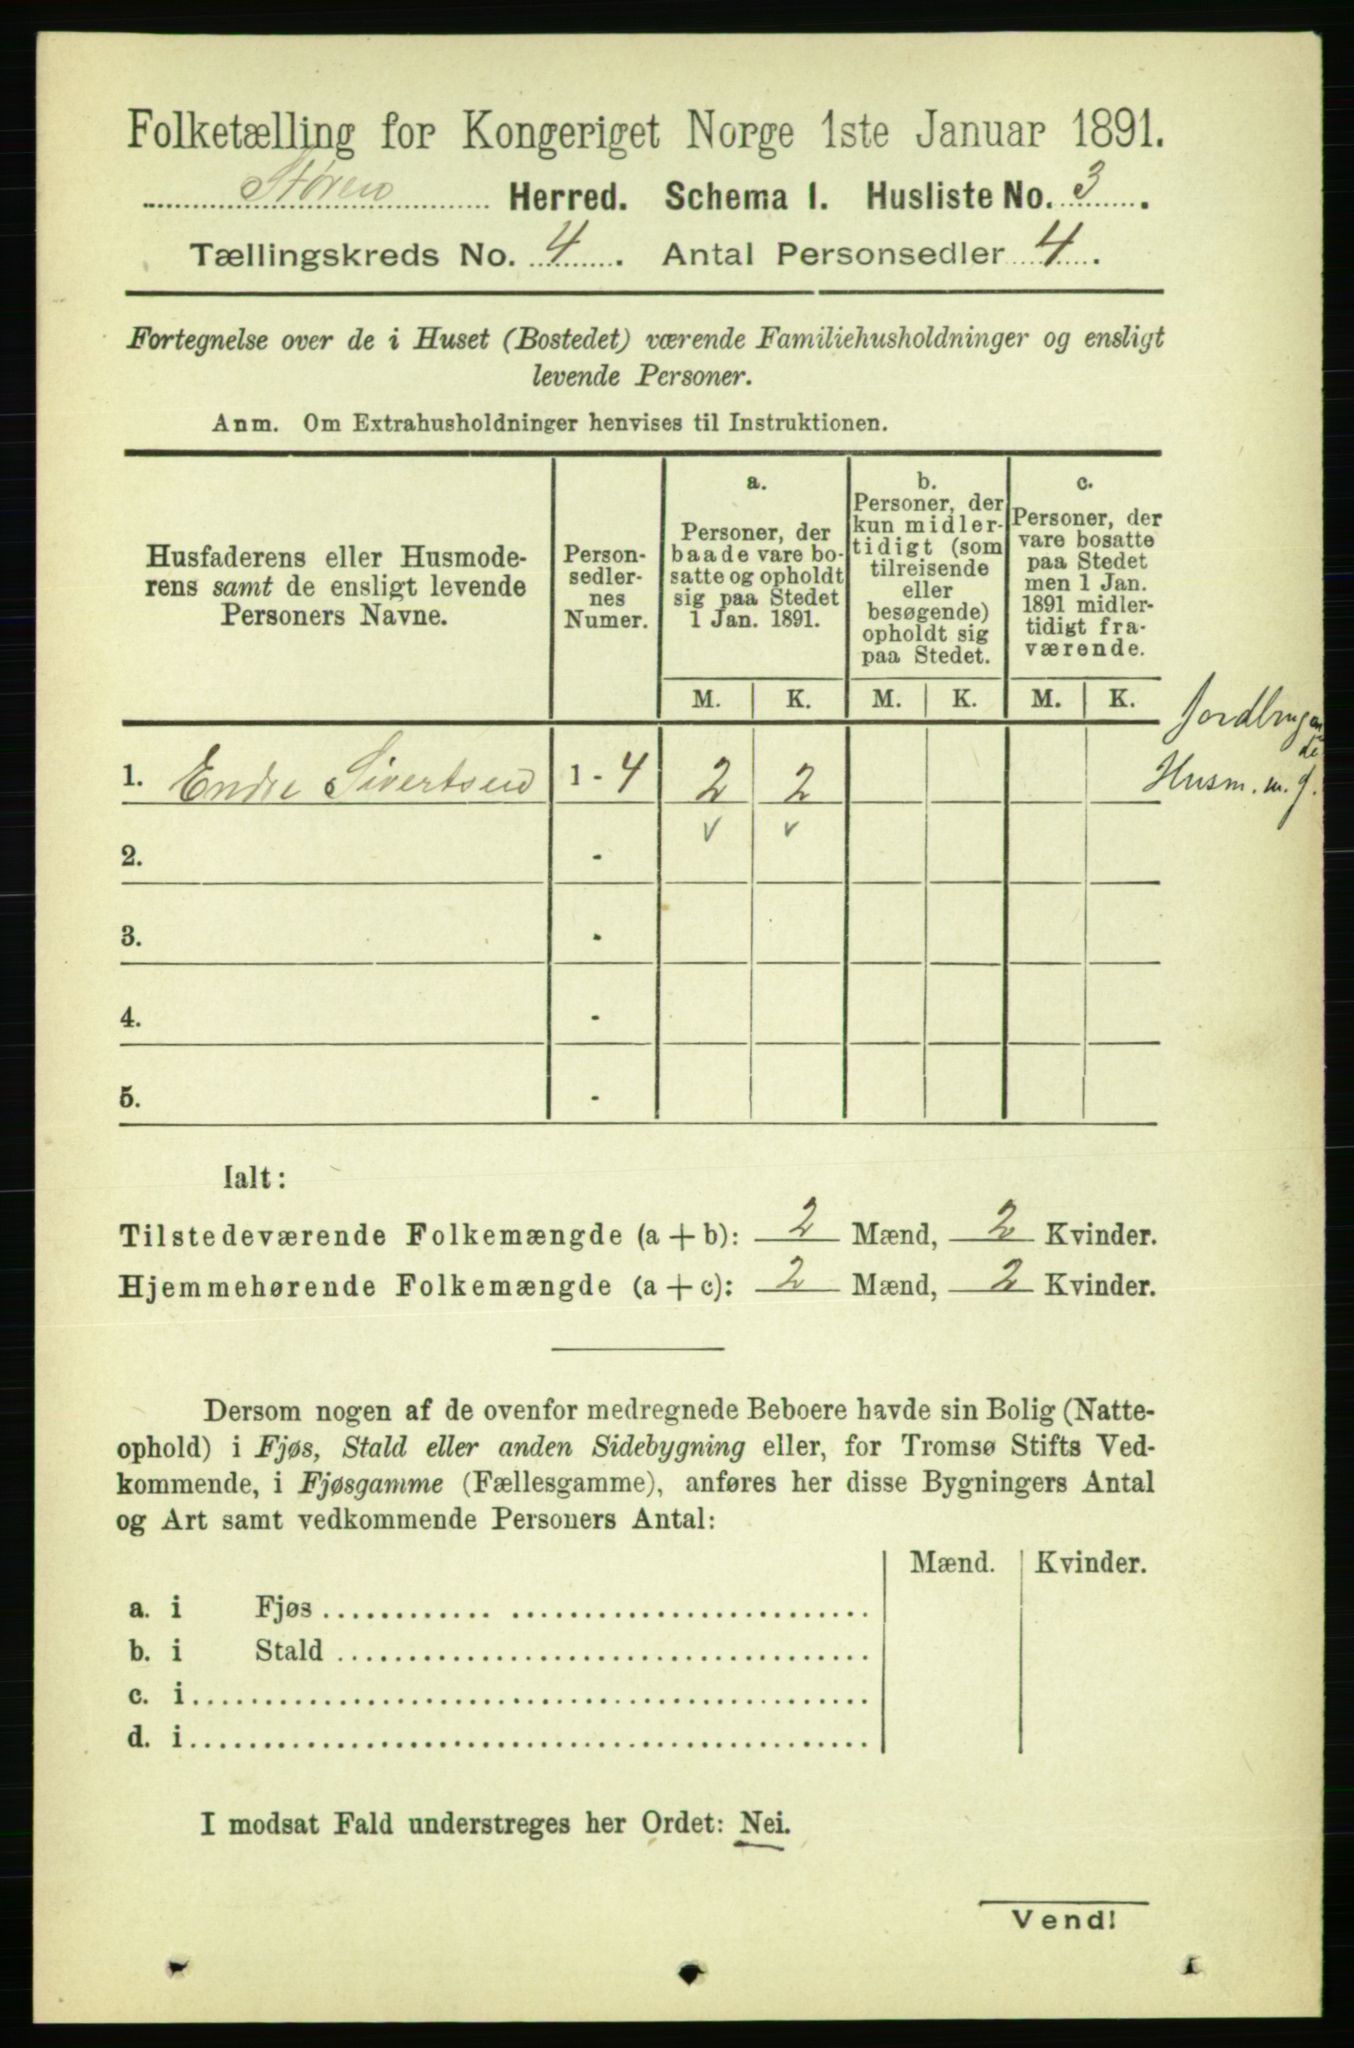 Folketælling for Kongeriget Norge 1ste Januar 1891.
Støren Herred. Schema I. Husliste No. 3.
Tællingskreds No. 4. Antal Personsedler 4.
Fortegnelse over de i Huset (Bostedet) værende Familiehusholdninger og ensligt
levende Personer.
Anm. Om Extrahusholdninger henvises til Instruktionen.
Husfaderens eller Husmode-
rens samt de ensligt levende
Personers Navne.
Person-
sedler-
nes
Numer.
a.
Personer, der
baade vare bo-
satte og opholdt
sig paa Stedet
1 Jan. 1891.
b.
Personer, der
kun midler-
tidigt (som
tilreisende
eller
besøgende)
opholdt sig
paa Stedet.
c.
Personer, der
vare bosatte
paa Stedet
men 1 Jan.
1891 midler-
tidigt fra-
værende.
M. K. M. K. M. K.
Jordbrugende
Husm. m. J.
1. Endre Sivertsen 1 - 4 2 2
v v
2. -
3. -
4. -
5. -
Ialt:
Tilstedeværende Folkemængde (a + b): 2 Mænd, 2 Kvinder.
Hjemmehørende Folkemængde (a + c): 2 Mænd, 2 Kvinder.
Dersom nogen af de ovenfor medregnede Beboere havde sin Bolig (Natte-
ophold) i Fjøs, Stald eller anden Sidebygning eller, for Tromsø Stifts Ved-
kommende, i Fjøsgamme (Fællesgamme), anføres her disse Bygningers Antal
og Art samt vedkommende Personers Antal:
Mænd. Kvinder.
a. i Fjøs
b. i Stald
c. i
d. i
I modsat Fald understreges her Ordet: Nei.
Vend!